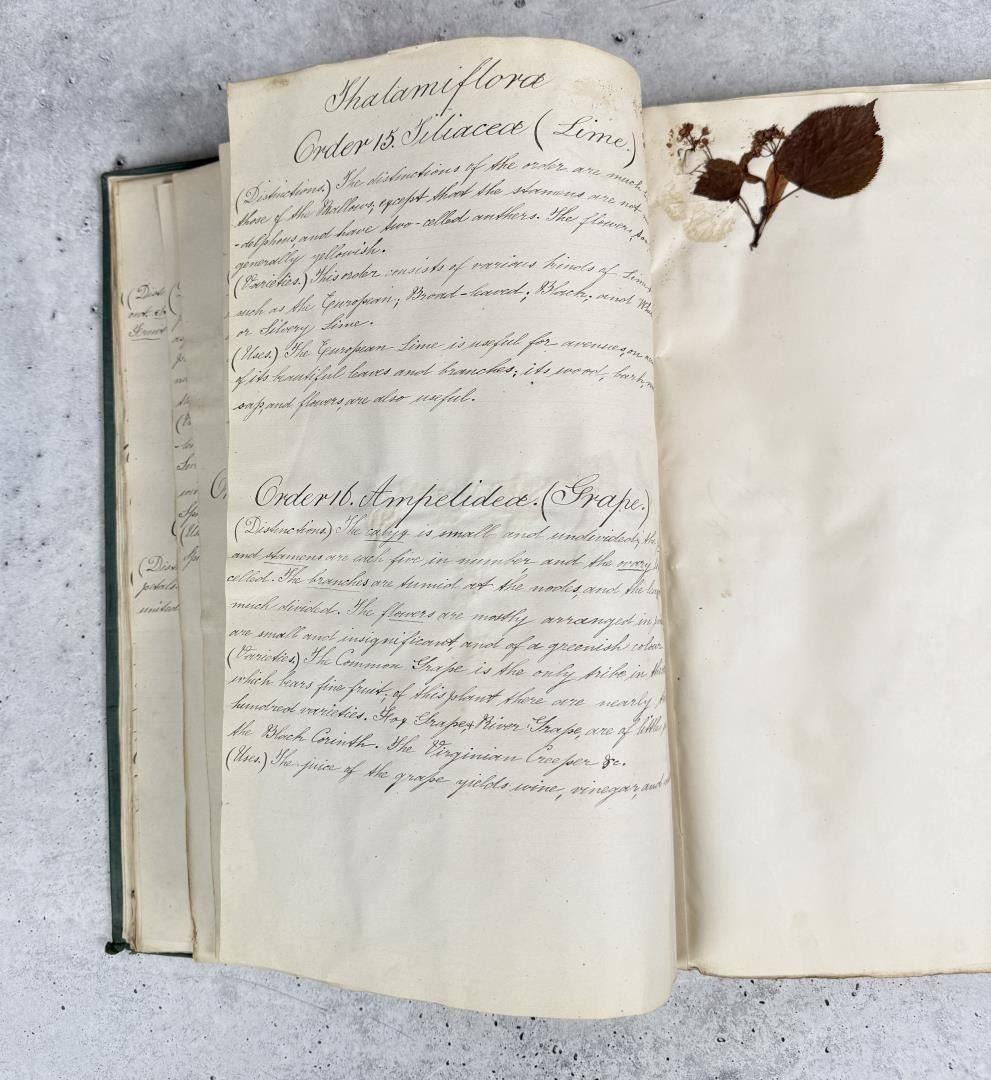 Thalamifloræ
Order 15. Tiliaceæ (Lime.)
(Distinctions.) The distinctions of the order are much
those of the Mallows, except that the stamens are not
-delphous, and have two-celled anthers. The flowers,
generally yellowish.
(Varieties.) This order consists of various kinds of Lime
such as the European; Broad-leaved; Black; and
or Silvery Lime.
(Uses.) The European Lime is useful for avenues, on
of its beautiful leaves and branches; its wood, bark,
sap, and flowers, are also useful.
Order 16. Ampelideæ. (Grape.)
(Distinctions.) The calyx is small and undivided; the
and stamens are each five in number and the ovary
celled. The branches are tumid at the nodes, and the
much divided. The flowers are mostly arranged in
are small and insignificant, and of a greenish colour
(Varieties.) The Common Grape is the only tribe in
which bears fine fruit; of this plant there are nearly
hundred varieties. Fox Grape & River Grape, are of little
the Black Corinth. The Virginian Creeper &c.
(Uses.) The juice of the grape yields wine, vinegar, and
(Dist
petals
united